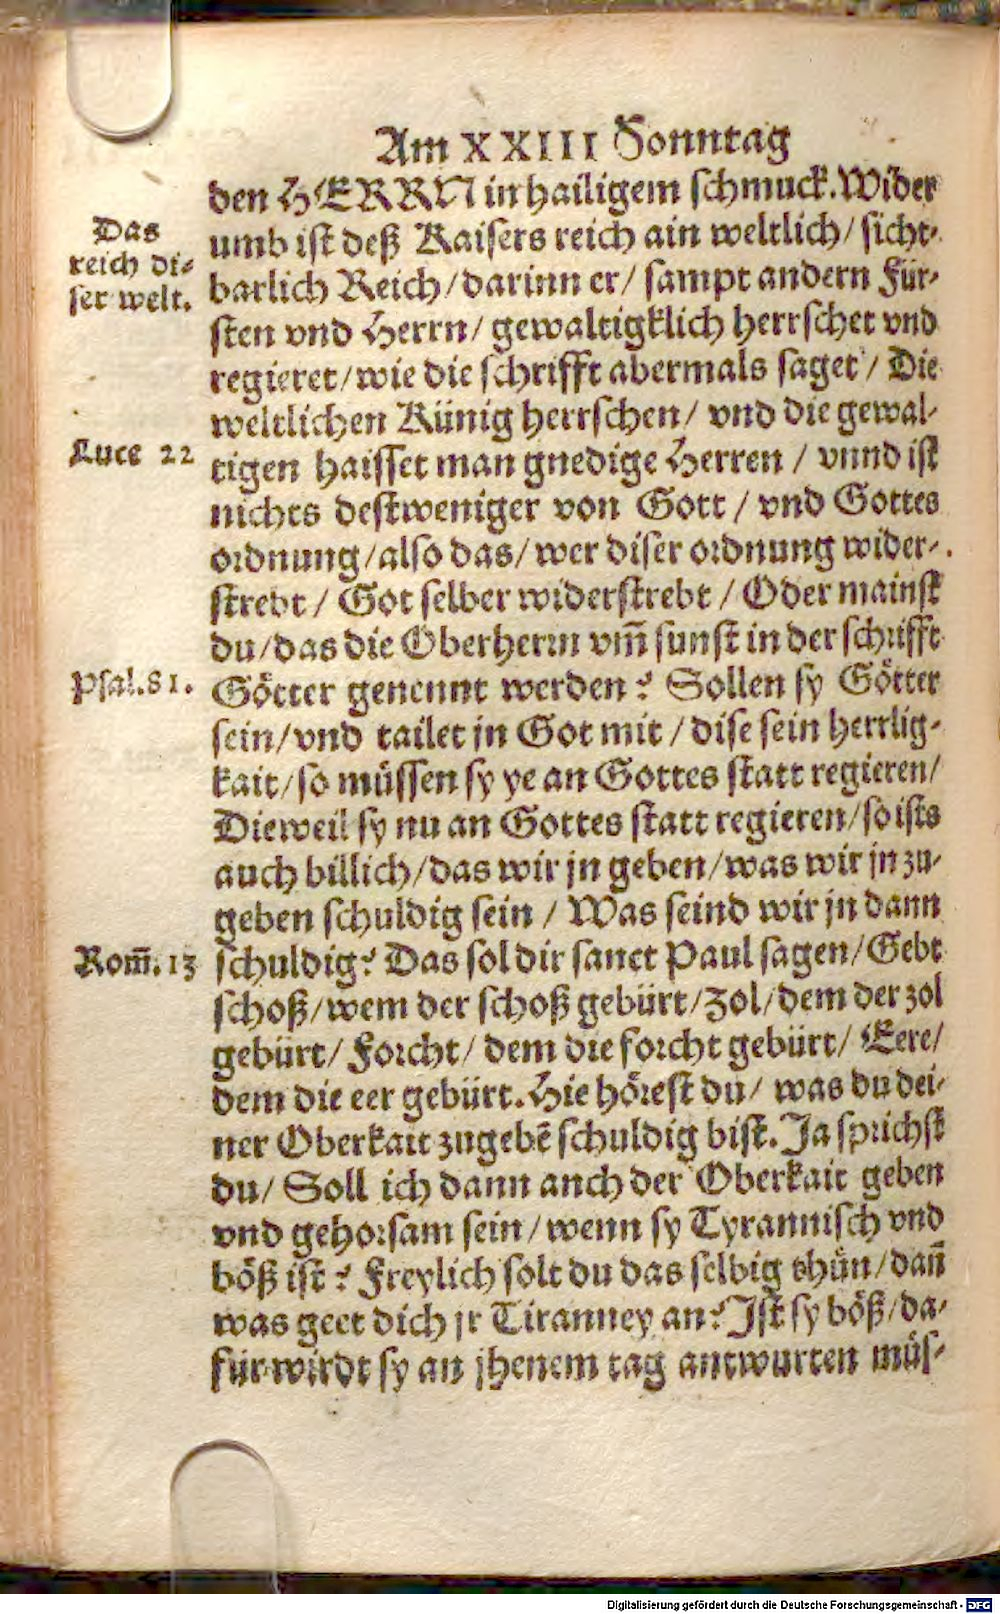 Am XXIII Sonntag
den HERRN in hailigem schmuck. Wider
Das
reich di-
ser welt.
umb ist deß Kaisers reich ain weltlich/ sicht-
barlich Reich/ darinn er/ sampt andern Für-
sten vnd Herrn/ gewaltigklich herrschet vnd
regieret/ wie die schrifft abermals saget/ Die
weltlichen Künig herrschen/ vnd die gewal-
Luce 22
tigen haisset man gnedige Herren/ vnnd ist
nichts destweniger von Gott/ vnd Gottes
ordnung/ also das/ wer diser ordnung wider-
strebt/ Got selber widerstrebt/ Oder mainst
du/ das die Oberherrn vm̃ sunst in der schrifft
Psal.81.
Götter genennt werden? Sollen sy Götter
sein/ vnd tailet jn Got mit/ dise sein herrlig-
kait/ so müssen sy ye an Gottes statt regieren/
Dieweil sy nu an Gottes statt regieren/ so ists
auch billich/ das wir jn geben/ was wir jn zu-
geben schuldig sein/ Was seind wir jn dann
Rom̃.13
schuldig? Das sol dir sanct Paul sagen/ Gebt
schoß/ wem der schoß gebürt/ Zol/ dem der zol
gebürt/ Forcht/ dem die forcht gebürt/ Eere/
dem die eer gebürt. Hie hörest du/ was du dei-
ner Oberkait zugebẽ schuldig bist. Ja sprichst
du/ Soll ich dann auch der Oberkait geben
vnd gehorsam sein/ wenn sy Tyrannisch vnd
böß ist? Freylich solt du das selbig thůn/ dañ
was geet dich jr Tiranney an? Ist sy böß/ da-
für wirdt sy an jhenem tag antwurten müs-
Digitalisierung gefördert durch die Deutsche Forschungsgemeinschaft - DFG